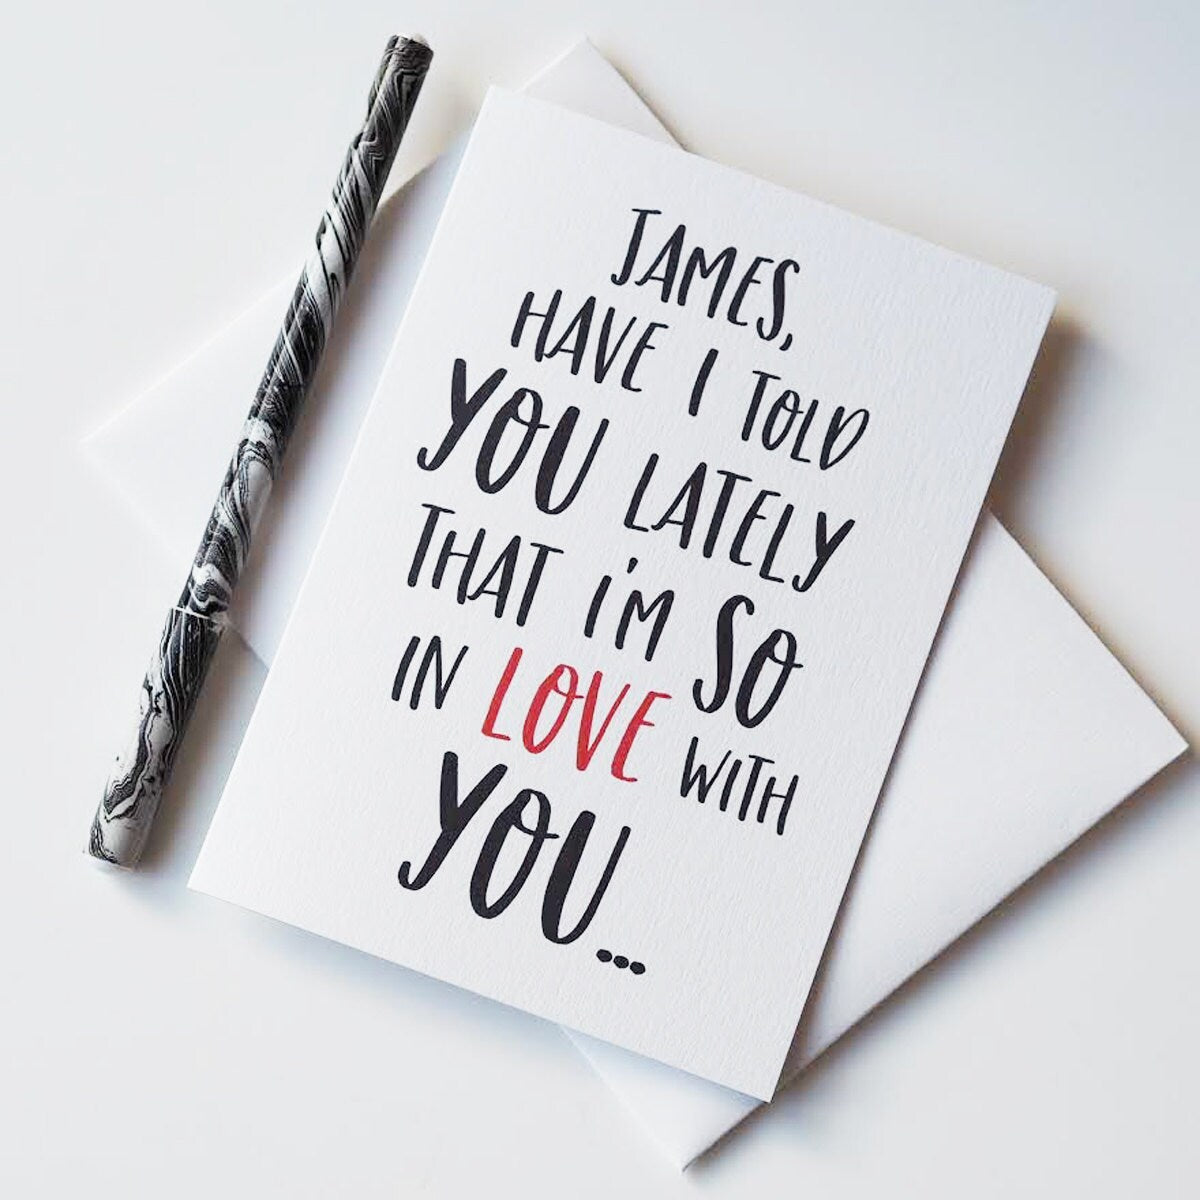 JAMES,
HAVE I TOLD
YOU LATELY
THAT I'M SO
IN LOVE WITH
YOU...